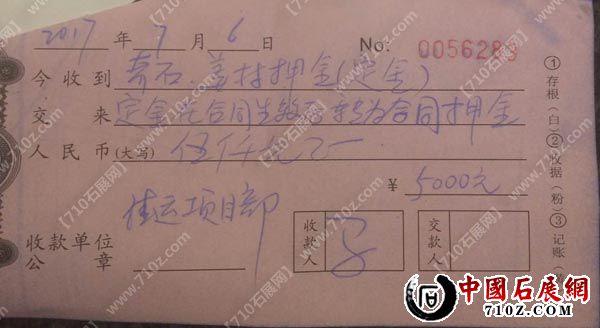 2017 年 7 月 6 日 No: 0056283
今收到 奇石、姜村押金(定金)
交来 定金在合同生效后转为合同押金
人民币(大写) 伍仟元
¥ 5000元
佳运项目部
收款单位公章
收款人
交款人
①存根(白)②收据(粉)③记账
【710石展网】
www.710z.com
中國石展網
710Z.COM